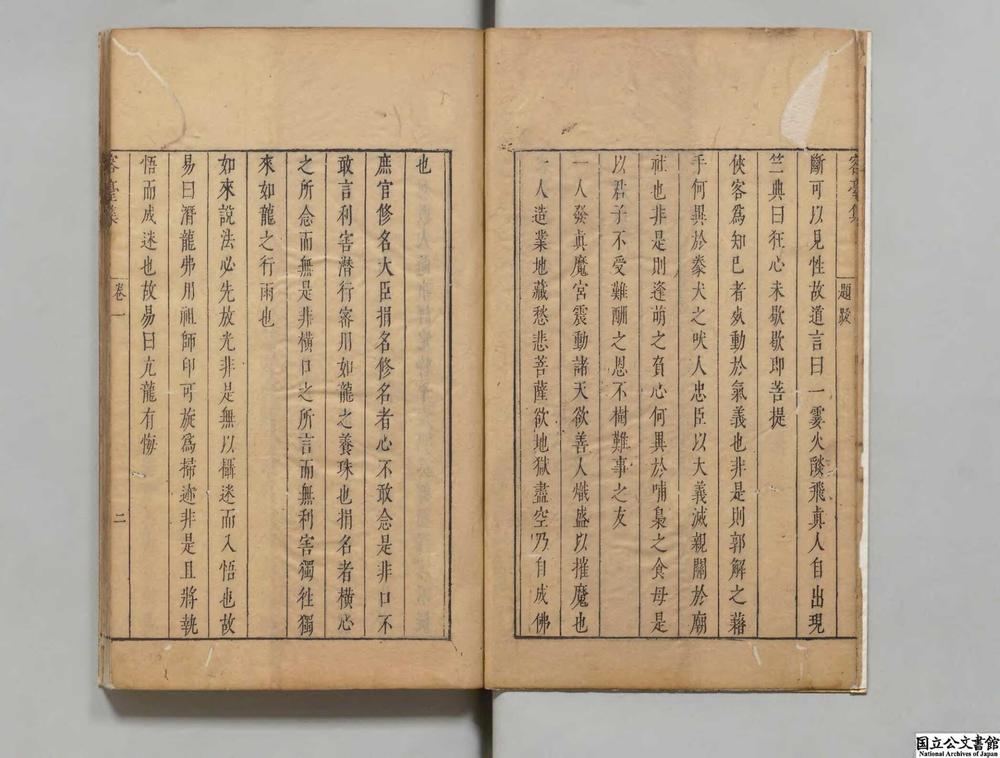 容臺集
題䟦
斷可以見性故道言曰一霎火燄飛真人自出現
竺典曰狂心未歇歇即菩提
俠客為知己者死動於氣義也非是則郭解之藉
手何異於豢犬之吠人忠臣以大義滅親關於廟
社也非是則逢萌之負心何異於哺梟之食母是
以君子不受難酬之恩不樹難事之友
一人發真魔宮震動諸天欲善人熾盛以摧魔也
一人造業地藏愁悲菩薩欲地獄盡空乃自成佛
也
庶官修名大臣捐名修名者心不敢念是非口不
敢言利害潛行密用如龍之養珠也捐名者橫心
之所念而無是非橫口之所言而無利害獨往獨
來如龍之行雨也
如來說法必先放光非是無以攝迷而入悟也故
易曰潛龍弗用祖師印可旋為掃迹非是且將執
悟而成迷也故易曰亢龍有悔
容臺集
卷一
二
国立公文書館
National Archives of Japan